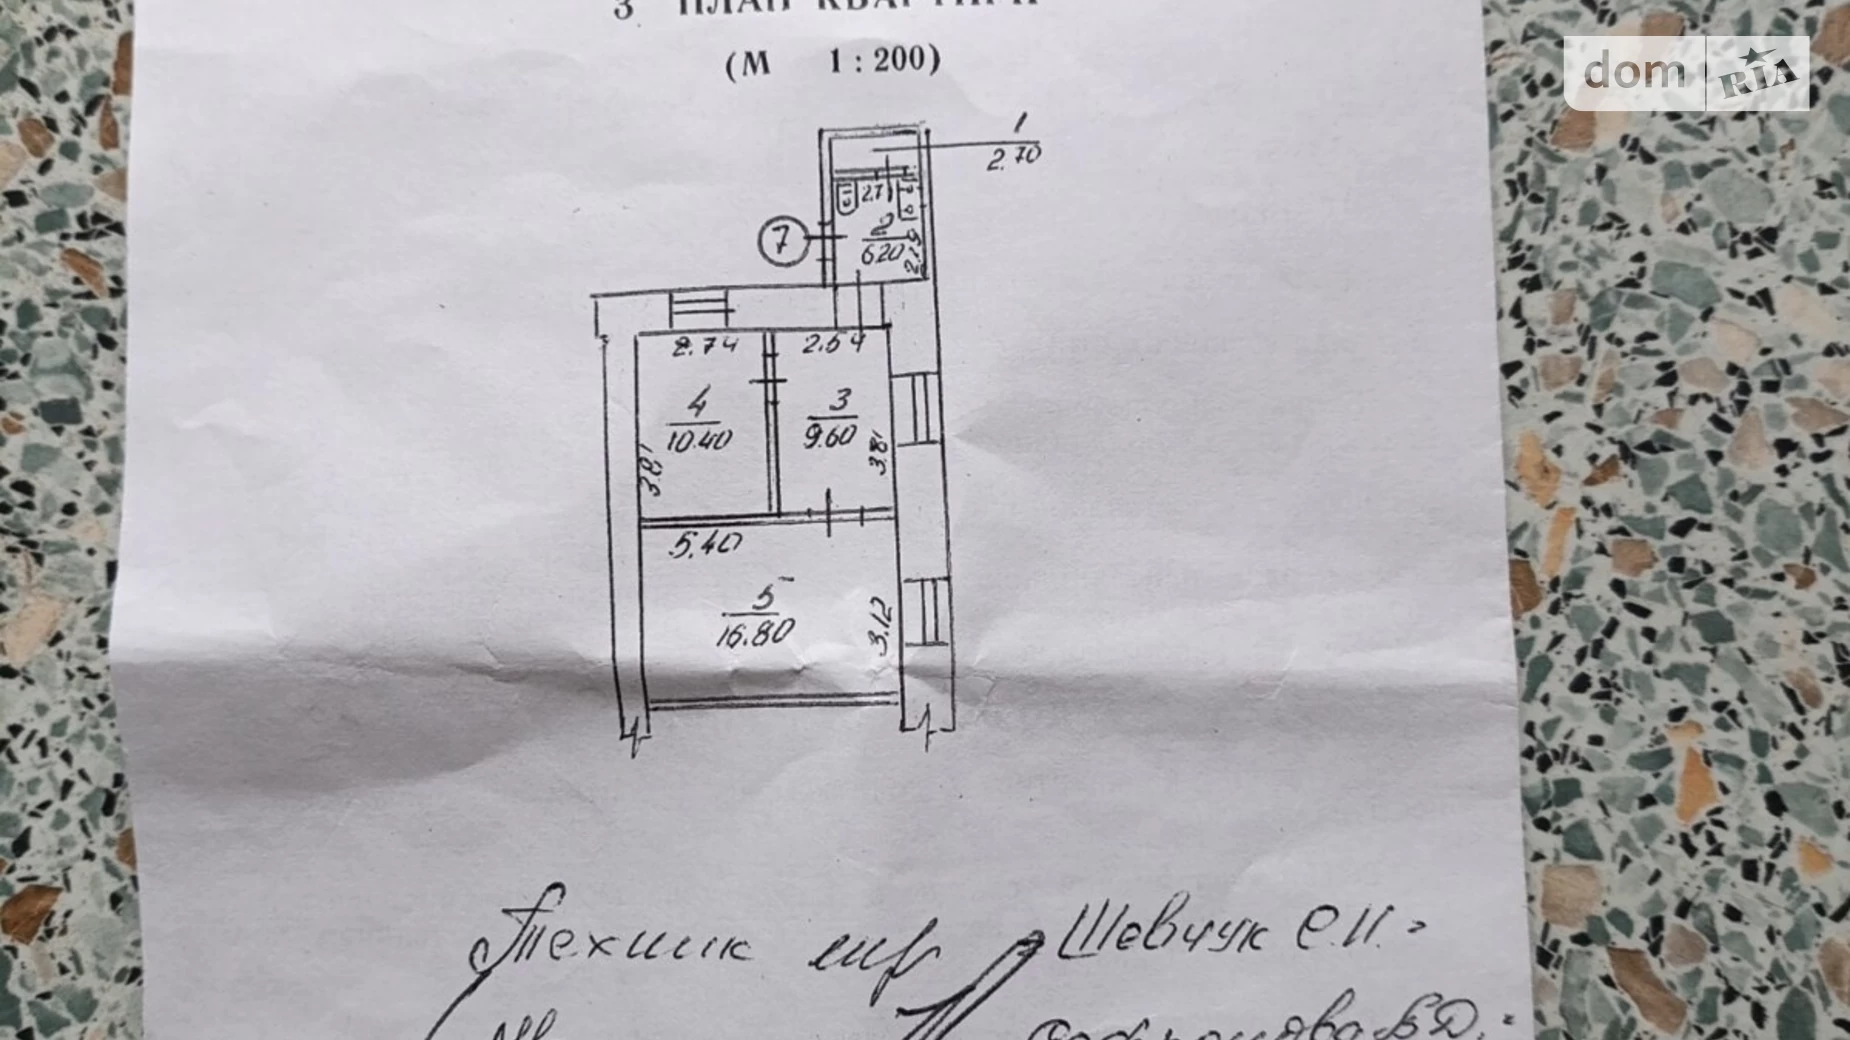 3 ПЛАН КВАРТИРИ
(М 1 : 200)
dom RIA
1
2.70
2.71
7
2
6.20
2.19
2.74
2.54
4
10.40
3
9.60
3.81
3.81
5.40
5
16.80
3.12
Технік Шевчук С.И.